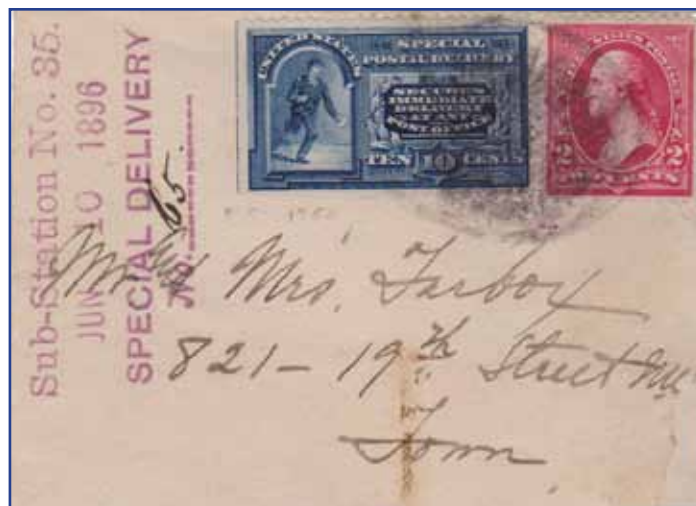 Sub-Station No. 35.
JUN 10 1896
SPECIAL DELIVERY
No. 65.
UNITED STATES
SPECIAL
POSTAL DELIVERY
SECURES
IMMEDIATE
DELIVERY
AT ANY
POST OFFICE
TEN 10 CENTS
UNITED STATES POSTAGE
2 2
TWO CENTS
Mrs. Tarboy
821 - 19th Street
Town